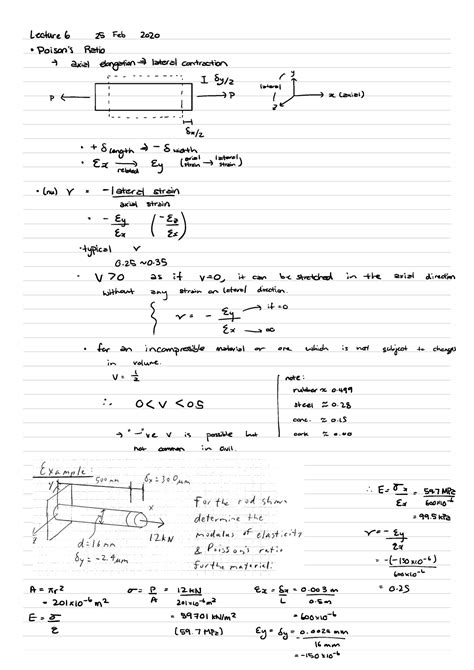 Lecture 6 25 Feb 2020
• Poison's Ratio
→ axial elongation → lateral contraction
δy/2
P P
δx/2
lateral y
x (axial)
z
• + δ length → - δ width
• εx → εy (axial strain → lateral strain)
related
• (nu) ν = -lateral strain
axial strain
= - εy / εx (-εz / εx)
• typical ν
0.25 ~ 0.35
• ν > 0 as if ν=0, it can be stretched in the axial direction
without any strain on lateral direction.
ν = - εy / εx → if = 0
→ ∞
• for an incompressible material or one which is not subject to changes
in volume.
ν = 1/2
∴ 0 < ν < 0.5
note:
rubber ≈ 0.499
steel ≈ 0.28
conc. ≈ 0.15
cork ≈ 0.00
→ "-"ve ν is possible but
not common in civil.
Example:
500mm δx = 300μm
y
x
z
12kN
d=16mm
δy = -2.4μm
For the rod shown
determine the
modulus of elasticity
& Poisson's ratio
for the material:
∴ E = σx / εx = 597 MPa / 600x10⁻⁶
= 99.5 kPa
ν = - εy / εx
= -(-150x10⁻⁶) / 600x10⁻⁶
= 0.25
A = πr²
= 201x10⁻⁶ m²
E = σ / ε
σ = P / A = 12kN / 201x10⁻⁶ m²
= 59701 kN/m²
(59.7 MPa)
εx = δx / L = 0.003 m / 0.5m
= 600x10⁻⁶
εy = δy = - 0.0024 mm / 16 mm
= -150x10⁻⁶